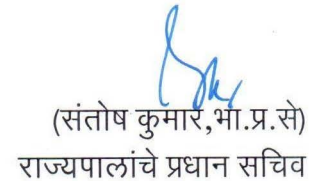 (संतोष कुमार,भा.प्र.से)
राज्यपालांचे प्रधान सचिव